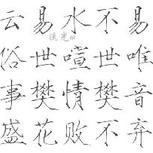 云易水不易
俗世喧世唯
事樊情樊音
盛花败不弃